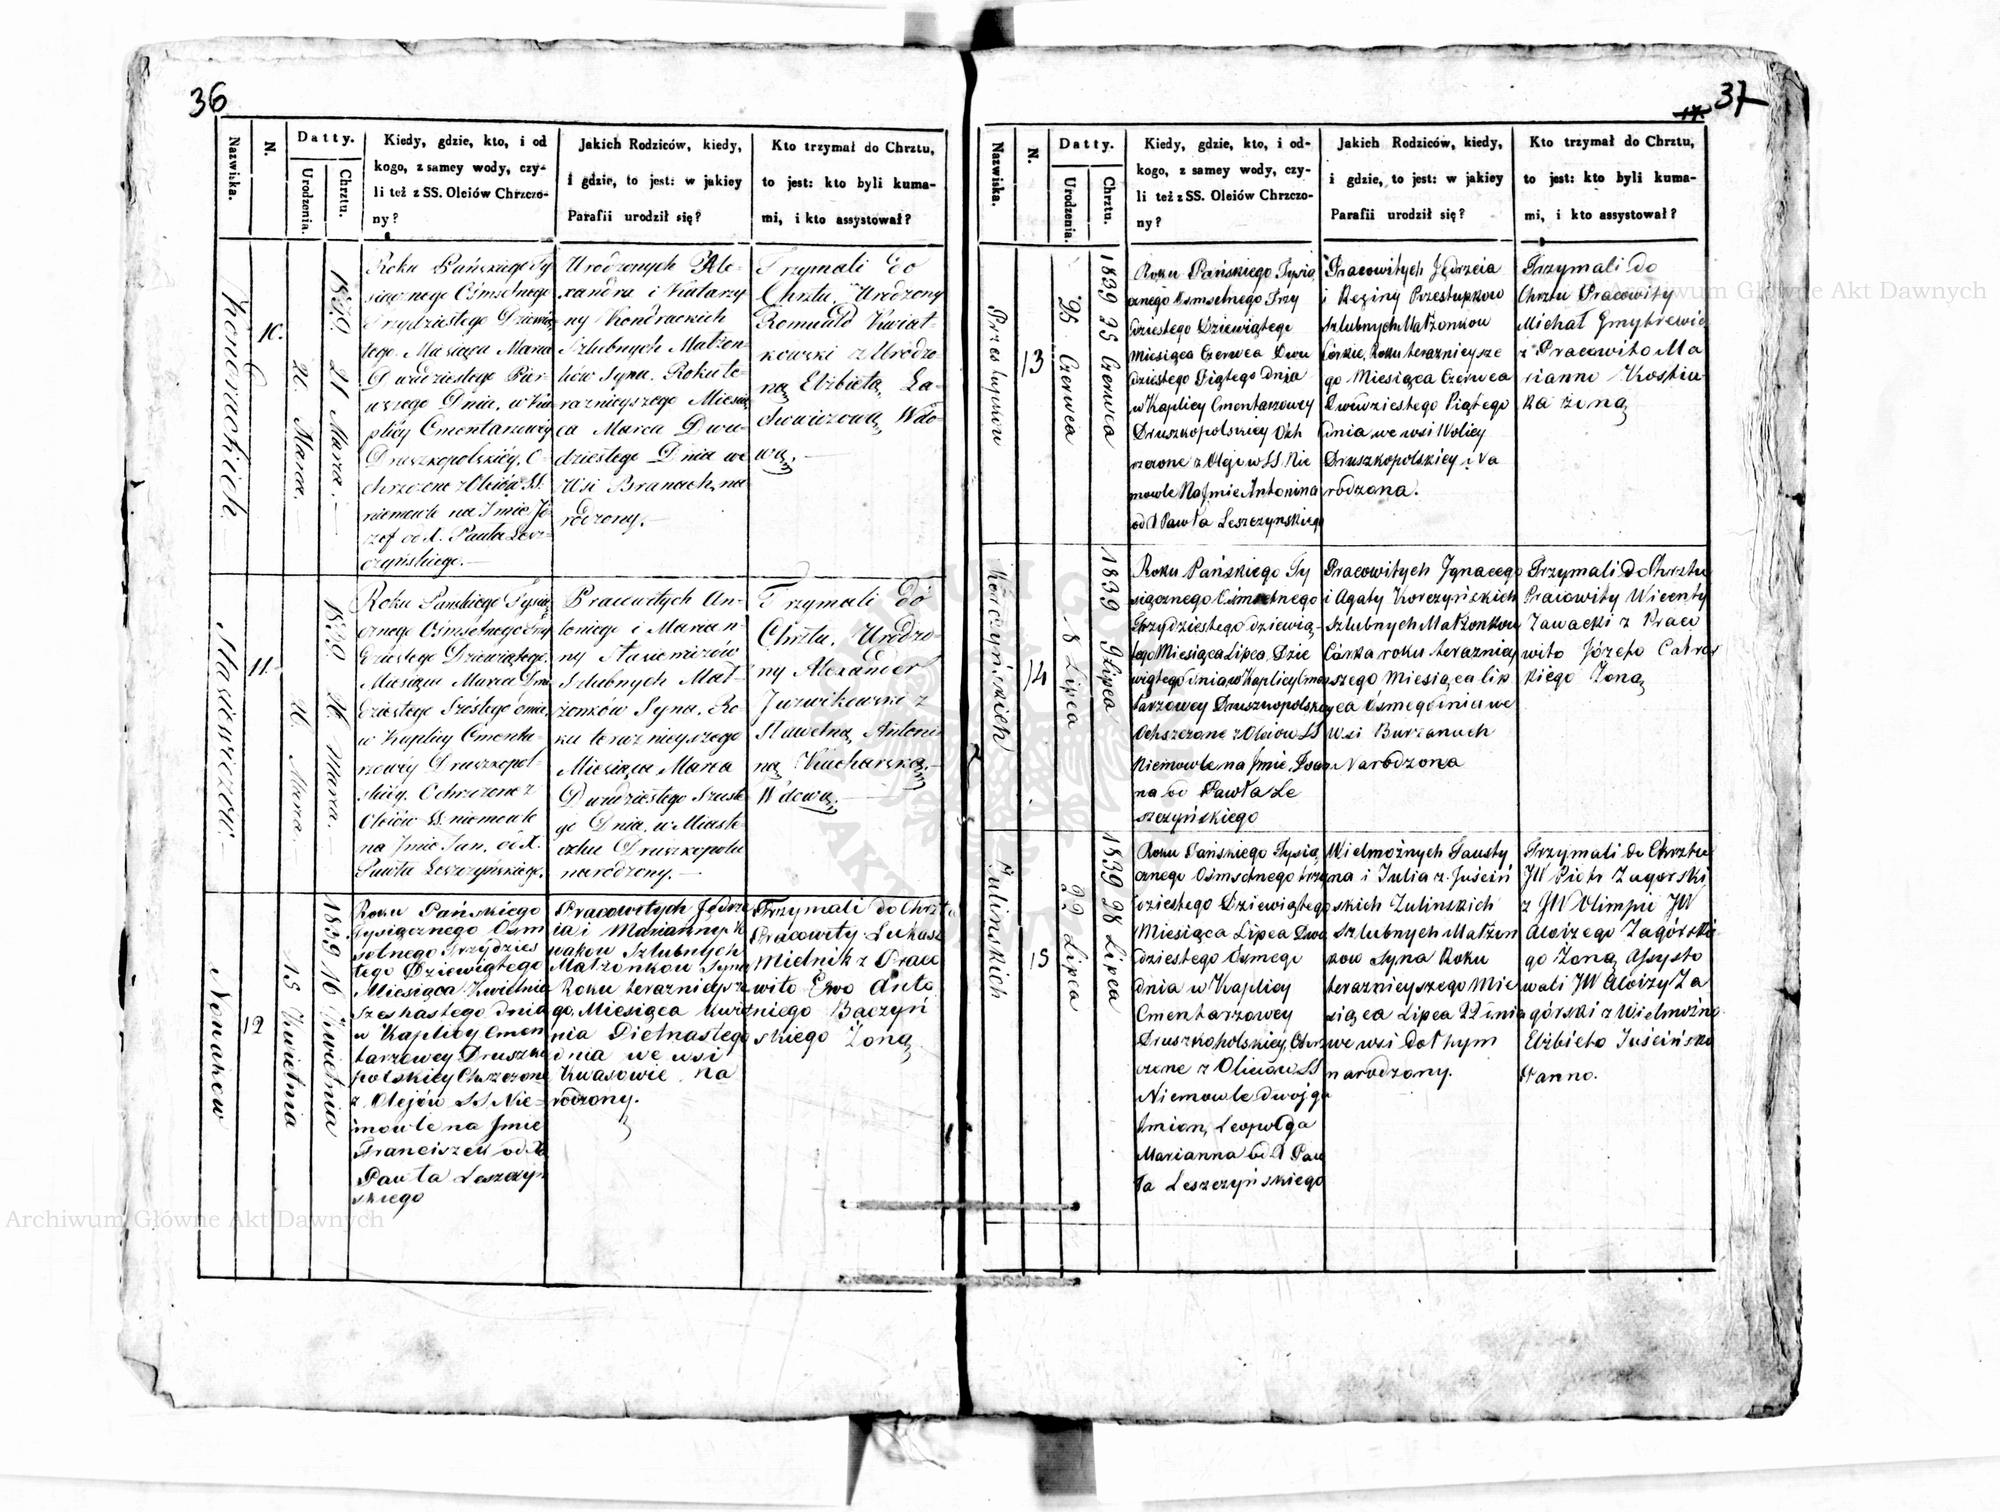 36
Nazwiska.
N.
Datty.
Urodzenia.
Chrztu.
Kiedy, gdzie, kto, i od
kogo, z samey wody, czy-
li też z SS. Oleiów Chrzczo-
ny?
Jakich Rodziców, kiedy,
i gdzie, to jest: w jakiey
Parafii urodził się?
Kto trzymał do Chrztu,
to jest: kto byli kuma-
mi, i kto assystował?
Kondrackich
10.
20. Marca.
1839. 21 Marca.
Roku Pańskiego Ty
siącznego Ośmsetnego
Trzydziestego Dziewią
tego Miesiąca Marca
Dwudziestego Pier-
wszego Dnia, w Ka
plicy Cmentarzowey
Druszkopolskiéy, O-
chrzczone z Oleiów SS.
niemowle na Imie Jó
zef od X. Pawła Lesz-
czyńskiego.
Urodzonych Ale-
xandra i Katarzy
ny Kondrackich
Szlubnych Małżon-
ków Syna. Roku te-
raznieyszego Miesią
ca Marca Dwu-
dziestego Dnia we
Wsi Branach, na
rodzony.
Trzymali do
Chrztu, Urodzony
Romuald Kwiat-
kowski z Urodzo-
ną Elżbietą La-
chowiczową Wdo-
wą.
Stasiewiczów.
11.
26. Marca.
1839. 26. Marca.
Roku Pańskiego Tysią
cznego Ośmsetnego Trzy
dziestego Dziewiątego
Miesiąca Marca Dwu
dziestego Szostego dnia,
w Kaplicy Cmenta-
rzowéy Druszkopol-
skiéy. Ochrzczone z
Oleiów SS. niemowle
na Imie Jan, od X.
Pawła Leszczyńskiego.
Pracowitych An-
toniego i Marian-
ny Stasiewiczów
Szlubnych Mał-
żonków Syna. Ro-
ku teraznieyszego
Miesiąca Marca
Dwudziestego Szoste
go Dnia, w Miaste-
czku Druszkopolu
narodzony.
Trzymali do
Chrztu, Urodzo-
ny Alexander
Juzwikowski z
Sławetną Antoni
ną Kucharską,
Wdową.
Nowakow
12
15 Kwietnia
1839 16 Kwietnia
Roku Pańskiego
Tysiącznego Ośm
setnego Trzydzies
tego Dziewiątego
Miesiąca Kwietnia
Szesnastego dnia
w Kaplicy Cmen
tarzowey Druszko
polskiey Chszczone
z Olejów SS Nie-
mowle na Jmie
Franciszek od X
Pawła Leszczyń
skiego
Pracowitych Jędrze
ia i Marianny No
wakow Szlubnych
Małżonkow Syna
Roku terazniejsze
go, Miesiąca Kwiet
nia Pietnastego
dnia we wsi
Kwasowie na
rodzony.
Trzymali do Chrztu
Pracowity Łukasz
Mielnik z Praco
wito Ewo Anto
niego Baczyń
skiego Żoną
37
Nazwiska.
N.
Datty.
Urodzenia.
Chrztu.
Kiedy, gdzie, kto, i od-
kogo, z samey wody, czy-
li też z SS. Oleiów Chrzczo-
ny?
Jakich Rodziców, kiedy,
i gdzie, to jest: w jakiey
Parafii urodził się?
Kto trzymał do Chrztu,
to jest: kto byli kuma-
mi, i kto assystował?
Przestupkow
13
25 Czerwca
1839 25 Czerwca
Roku Pańskiego Tysią
cznego Osmsetnego Trzy
dziestego Dziewiątego
Miesiąca Czerwca Dwu
dziestego Piątego Dnia
w Kaplicy Cmentarzowey
Druszkopolskiey Och
rzczone z Olejow SS. Nie
mowle Na Jmie Antonina
od X Pawła Leszczynskiego
Pracowitych Jędrzeia
i Reginy Przestupkow
Szlubnych Małżonkow
Córkie, Roku terazniejsze
go Miesiąca Czerwca
Dwudziestego Piątego
dnia we wsi Wolicy
Druszkopolskiey Na
rodzona.
Trzymali do
Chrztu Pracowity
Michał Gmytrewic
z Pracowito Ma
rianno Kostiu
ka żoną
Korczyńskich
14
8 Lipca
1839 9 Lipca
Roku Pańskiego Ty
siącznego Ośmsetnego
Trzydziestego dziewią-
tego Miesiąca Lipca Dzie
wiątego dnia w Kaplicy Cmen
tarzowey Druszkopolskiey
Ochszczone z Oleiow SS
Niemowle na Jmie Joan
na od Pawła Le
szczyńskiego
Pracowitych Jgnacego
i Agaty Korczyńskich
Szlubnych Małżonkow
Córka roku terazniej
szego Miesiąca lip
ca Osmego dnia we
Wsi Burzanuch
Narodzona
Trzymali do Chrztu
Pracowity Wicenty
Zawacki z Praco
wito Józefa
kiego Zoną
Zulinskich
15
22 Lipca
1839 28 Lipca
Roku Pańskiego Tysią
cznego Ośmsetnego trzy
dziestego Dziewiątego
Miesiąca Lipca Dwu
dziestego Osmego
dnia w Kaplicy
Cmentarzowey
Druszkopolskiey, Ochrz
czone z Oliciów SS
Niemowle dwojga
Jmion, Leopolda
Marianna od X Paw
ła Leszczyńskiego
Wielmożnych Fausty
na i Julia z Juściń
skich Zulinskich
Szlubnych Małżon
kow Syna Roku
teraznieyszego Mie
siąca Lipca 22 dnia
we wsi Dołhym
narodzony.
Trzymali do Chrztu
JW Piotr Zagorski
z JW Olimpie JW
Aloizego Zagórskie
go Żoną Assysto
wali JW Aloizy Za
górski z Wielmożno
Elżbieto Juścińsko
Panno.
Archiwum Główne Akt Dawnych
Archiwum Główne Akt Dawnych